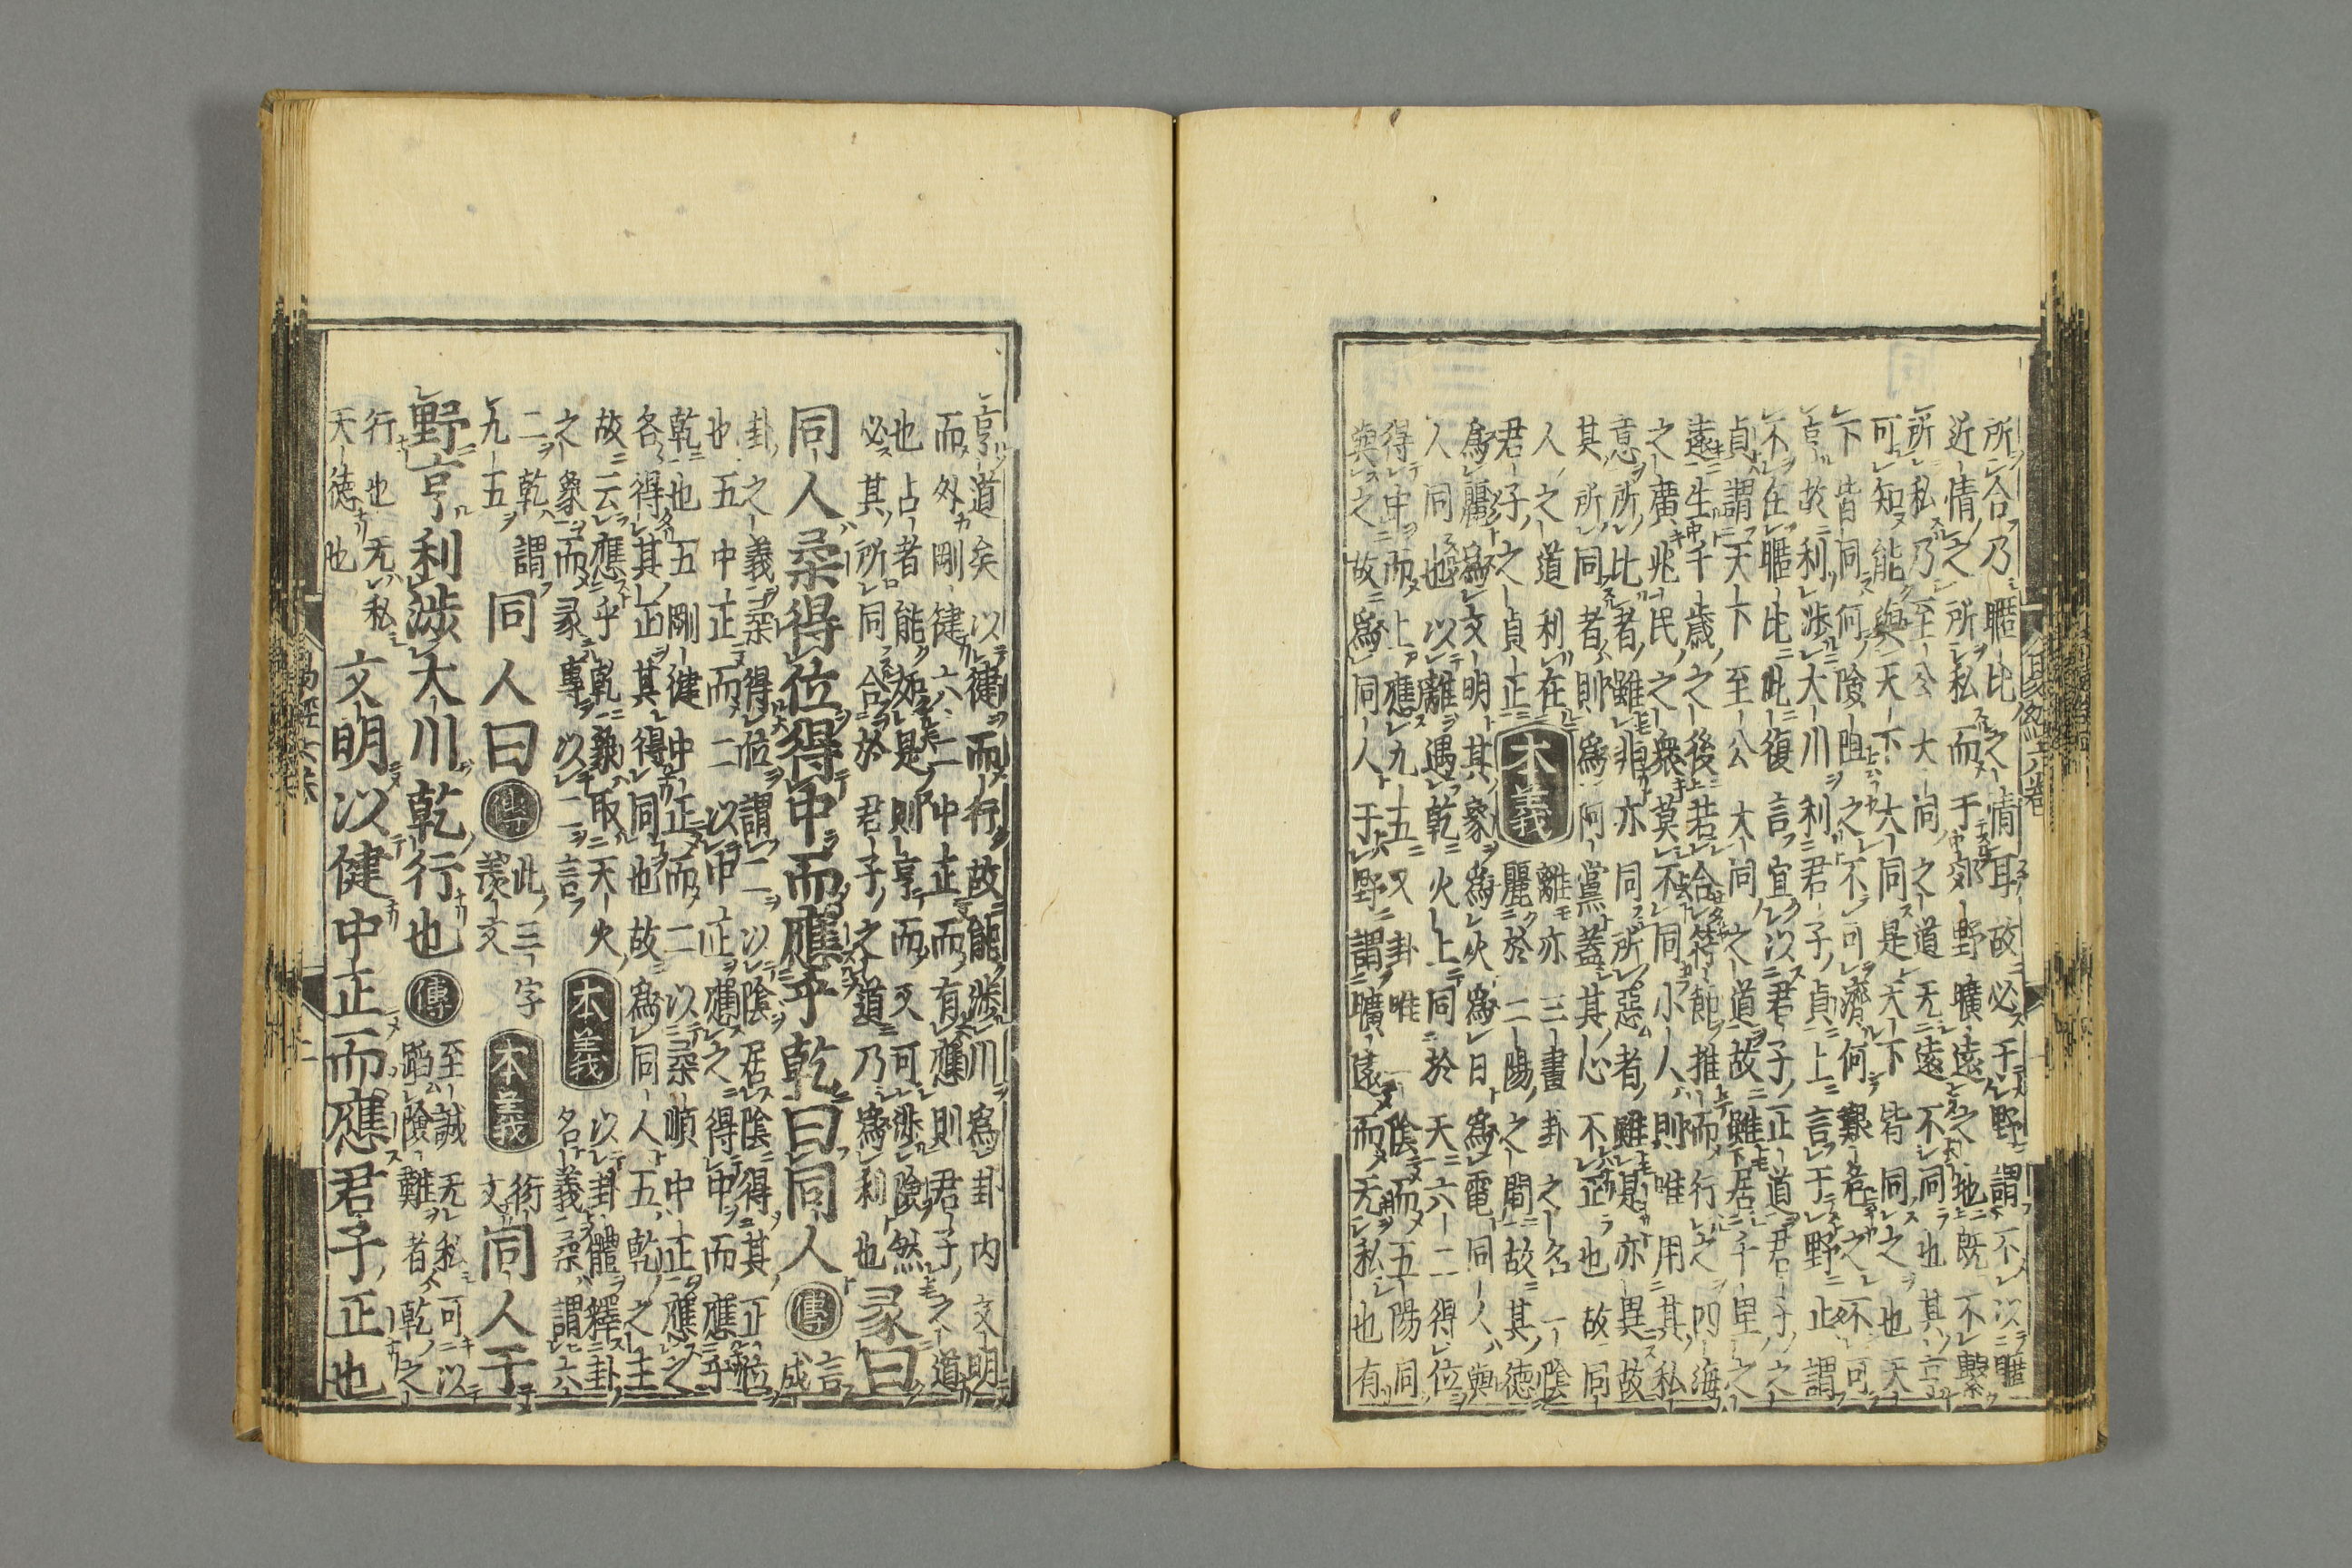 所合乃暱比之情耳故必于野謂不以暱
近情之所私而于郊野曠遠之地既不繫
所私乃至公大同之道无遠不同也其亨
可知能與天下大同是天下皆同之也天
下皆同何險阻之不可濟何艱危之不可
亨故利渉大川利君子貞上言于野止謂
不在暱比此復言宜以君子正道君子之
貞謂天下至公大同之道故雖居千里之
遠生千歳之後若合符節推而行之四海
之廣兆民之衆莫不同小人則唯用其私
意所比者雖非亦同所惡者雖是亦異故
其所同者則為阿黨蓋其心不正也故同
人之道利在
君子之貞正
本義
離亦三畫卦之名一陰
麗於二陽之間故其德
為麗為文明其象為火為日為電同人與
人同也以離遇乾火上同於天六二得位
得中而上應九五又卦唯一陰而五陽同
與之故為同人于野謂曠遠而无私也有
亨道矣以健而行故能渉川為卦内文明
而外剛健六二中正而有應則君子之道
也占者能如是則亨而又可渉險然
必其所同合於君子之道乃為利也
彖曰
同人柔得位得中而應乎乾曰同人
傳
言
成
卦之義柔得位謂二以陰居陰得其正位
也五中正而二以中正應之得中而應乎
乾也五剛健中正而二以柔順中正應之
各得其正其得同也故為同人五乾之主
故云應乎乾象取天火
之象而彖專以二言
本義
以卦體釋卦
名義柔謂六
二乾謂
九五
同人曰
傳
此三字
羨文
本義
衍
文
同人于
野亨利渉大川乾行也
傳
至誠无私可以
蹈險難者乾之
行也无私
天德也
文明以健中正而應君子正也